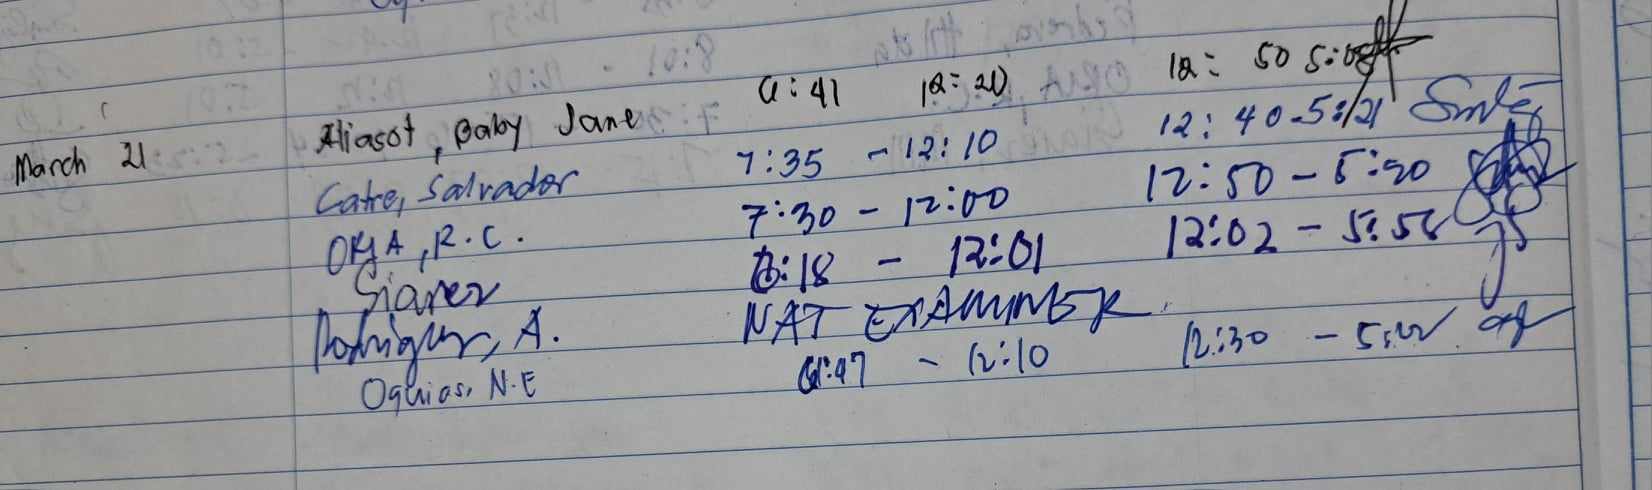 March 21 Aliasot, Baby Jane 6:41 12:20 12:50 5:08
Catre, Salvador 7:35 - 12:10 12:40-5:21
ORJA, R.C. 7:30 - 12:00 12:50 - 5:20
Siarez 6:18 - 12:01 12:02 - 5:58
Rodriguez, A. NAT EXAMINER
Oquias, N.E 6:47 - 12:10 12:30 - 5:22